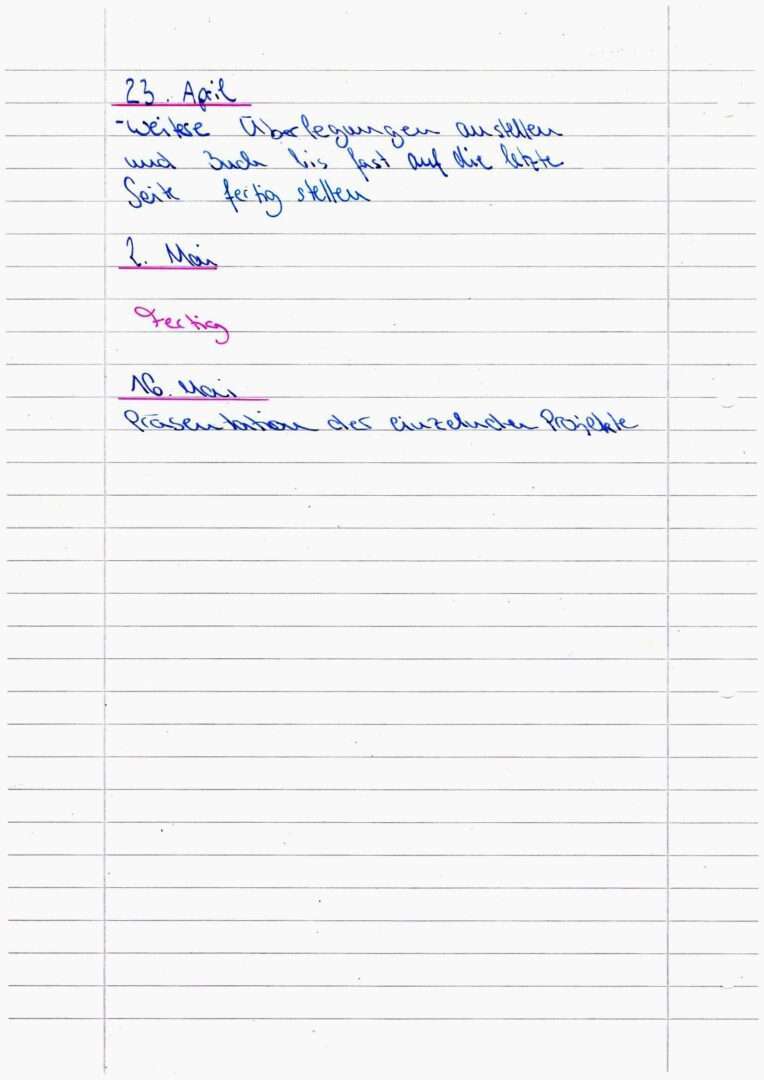 23. April
-weitere Überlegungen anstellen
und Buch bis fast auf die letzte
Seite fertig stellen
2. Mai
Fertig
16. Mai
Präsentation der einzelnden Projekte